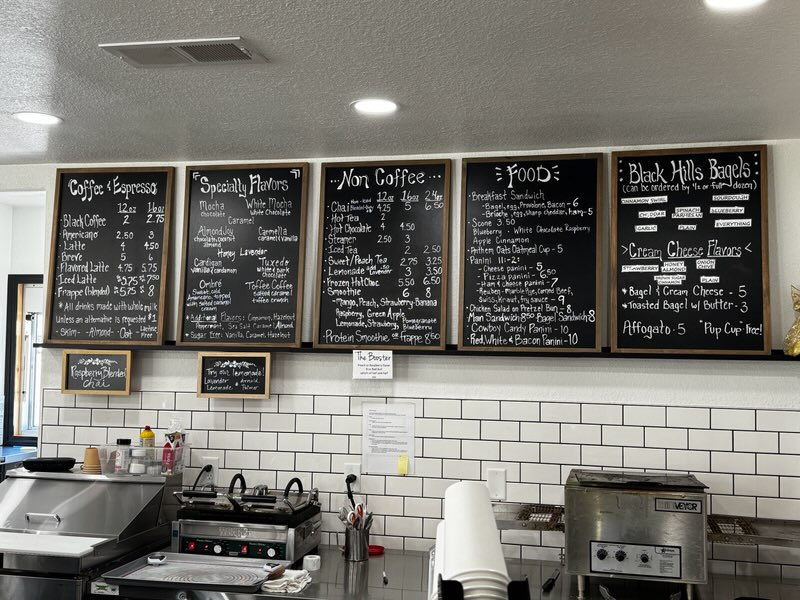 Coffee & Espresso
12oz 16oz
Black Coffee 2 2.75
Americano 2.50 3
Latte 4 4.50
Breve 5 6
Flavored Latte 4.75 5.75
Iced Latte
Frappe (blended) 8
*All drinks made with whole milk
Unless an alternative is requested $1
-Skim- -Almond- -Oat- Lactose Free
Specialty Flavors
Mocha
chocolate
White Mocha
White Chocolate
Caramel
Almond Joy
chocolate, coconut
almond
Carmella
vanilla caramel
Honey Lavender
Cardigan
vanilla & cinnamon
Tuxedo
white & dark
chocolate
Ombré
Toffee Coffee
Flavors: Cinnamon, Hazelnut
Peppermint, Sea Salt Caramel, Almond
Sugar Free: Vanilla, Caramel, Hazelnut
Non Coffee
12oz 16oz 24oz
Chai 4.25 5 6.50
Hot Tea 2
Hot Chocolate 4 4.50
Steamer 2.50 3
Iced Tea 2 2.50
Sweet/Peach Tea 2.75 3.25
Lemonade 3 3.50
Frozen Hot Choc 5.50 6.50
Smoothie 6 8
Mango, Peach, Strawberry Banana
Raspberry, Green Apple
Lemonade, Strawberry, Pomegranate Blueberry
Protein Smoothie or Frappe 8.50
FOOD
Breakfast Sandwich
-Bagel, egg, Provolone, Bacon - 6
-Brioche, egg, sharp cheddar, ham - 5
Scone 3.50
Blueberry - White Chocolate Raspberry
Apple Cinnamon
Anthem Oats Oatmeal Cup - 5
Panini 11-2:
- Cheese panini - 5
- Pizza panini - 6.50
- Ham & cheese panini - 7
- Reuben - Marble Rye, Corned Beef,
Swiss, Kraut, fry sauce - 9
Chicken Salad on Pretzel Bun - 8
Ham Sandwich 8.50 Bagel Sandwich 8
Cowboy Candy Panini - 10
Red, White & Bacon Panini - 10
Black Hills Bagels
(can be ordered by ½ or full dozen)
CINNAMON SWIRL
SOURDOUGH
CHEDDAR
SPINACH PARMESAN
BLUEBERRY
GARLIC
PLAIN
EVERYTHING
Cream Cheese Flavors
STRAWBERRY
HONEY ALMOND
ONION CHIVE
BROWN SUGAR CINNAMON
PLAIN
*Bagel & Cream Cheese - 5
*Toasted Bagel w/ Butter - 3
Affogato - 5 Pup Cup - Free!
Raspberry Blended
Chai
Try our lemonade!
Lavender
Lemonade
Arnold
Palmer
The Booster